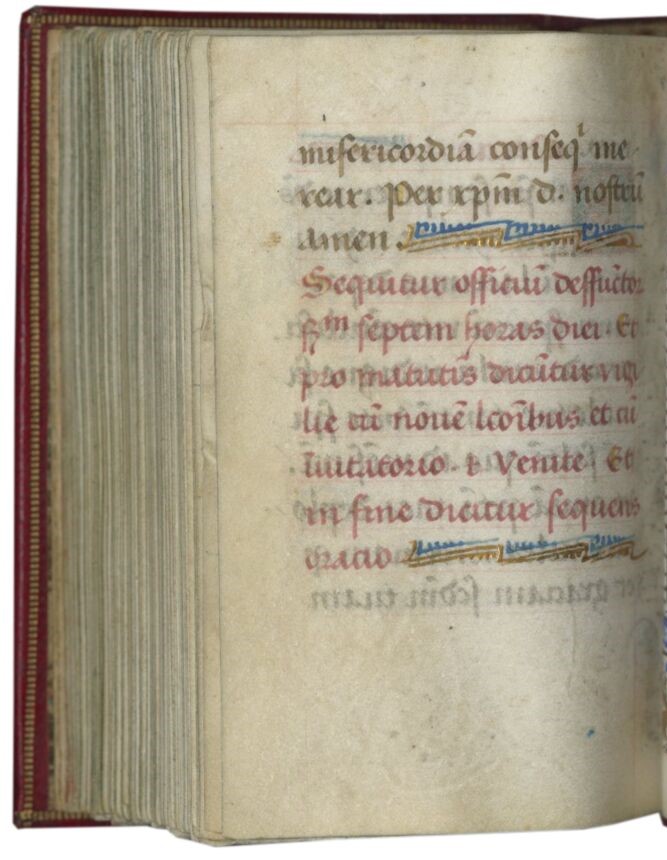 misericordiā conseq̄ me
rear. Per xpm̄ d. nostrū
amen.
Sequitur officiū deffūctor
ꝫm septem horas diei Et
pro matutīs dicūtur vigi
lie cū novē lcōibus et cū
īvitatorio. ⁊ Venite Et
in fine dicitur sequens
oracio